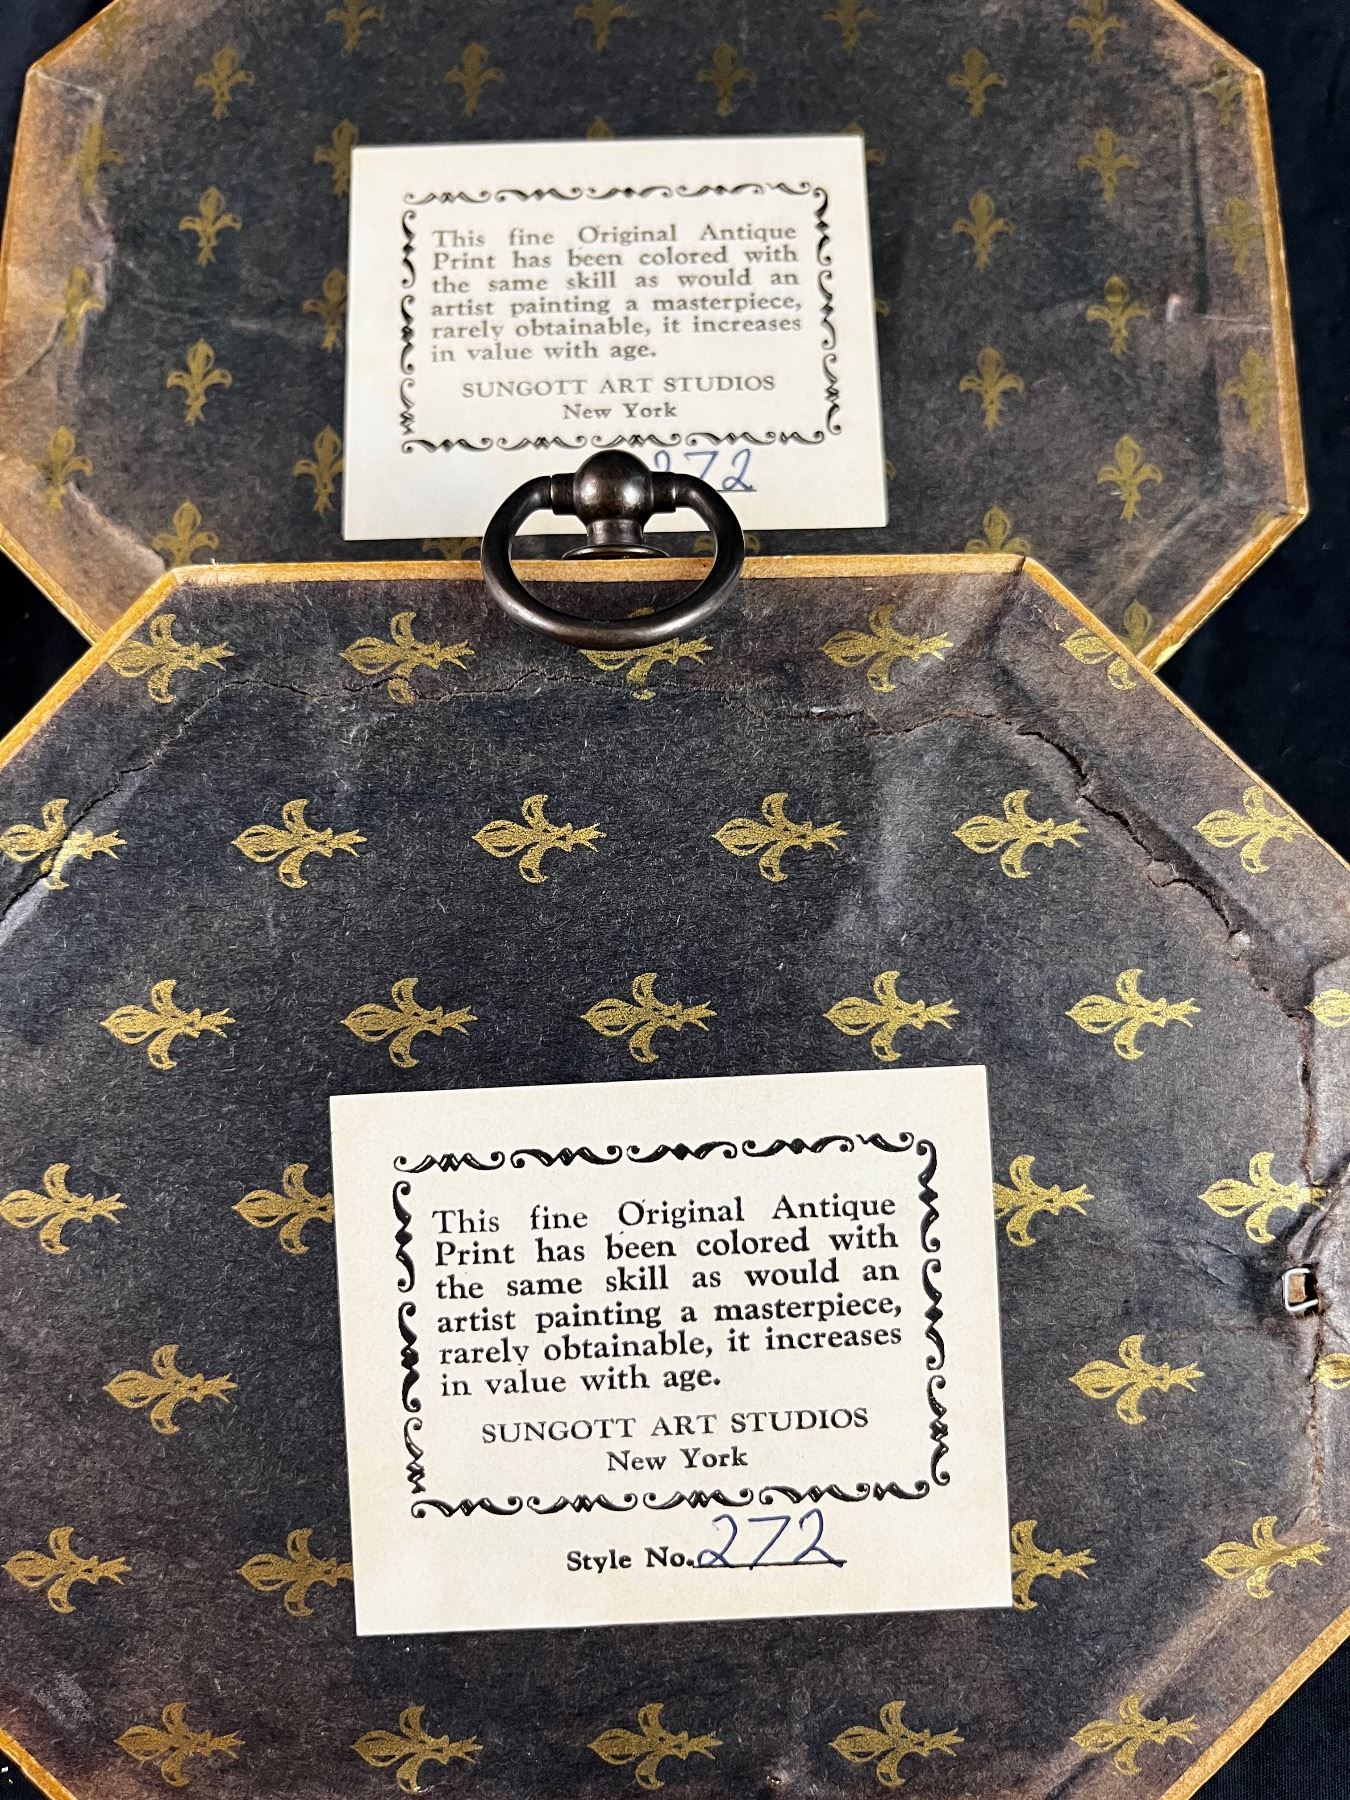 This fine Original Antique
Print has been colored with
the same skill as would an
artist painting a masterpiece,
rarely obtainable, it increases
in value with age.
SUNGOTT ART STUDIOS
New York
272
This fine Original Antique
Print has been colored with
the same skill as would an
artist painting a masterpiece,
rarely obtainable, it increases
in value with age.
SUNGOTT ART STUDIOS
New York
Style No. 272